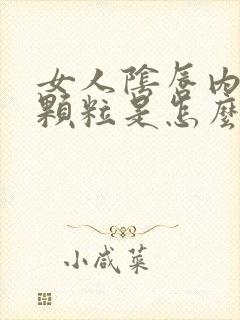 女人陰唇内
顆粒是怎麼
小咸菜